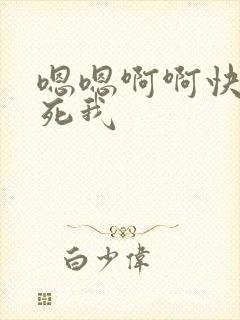 嗯嗯啊啊快
死我
白少偉